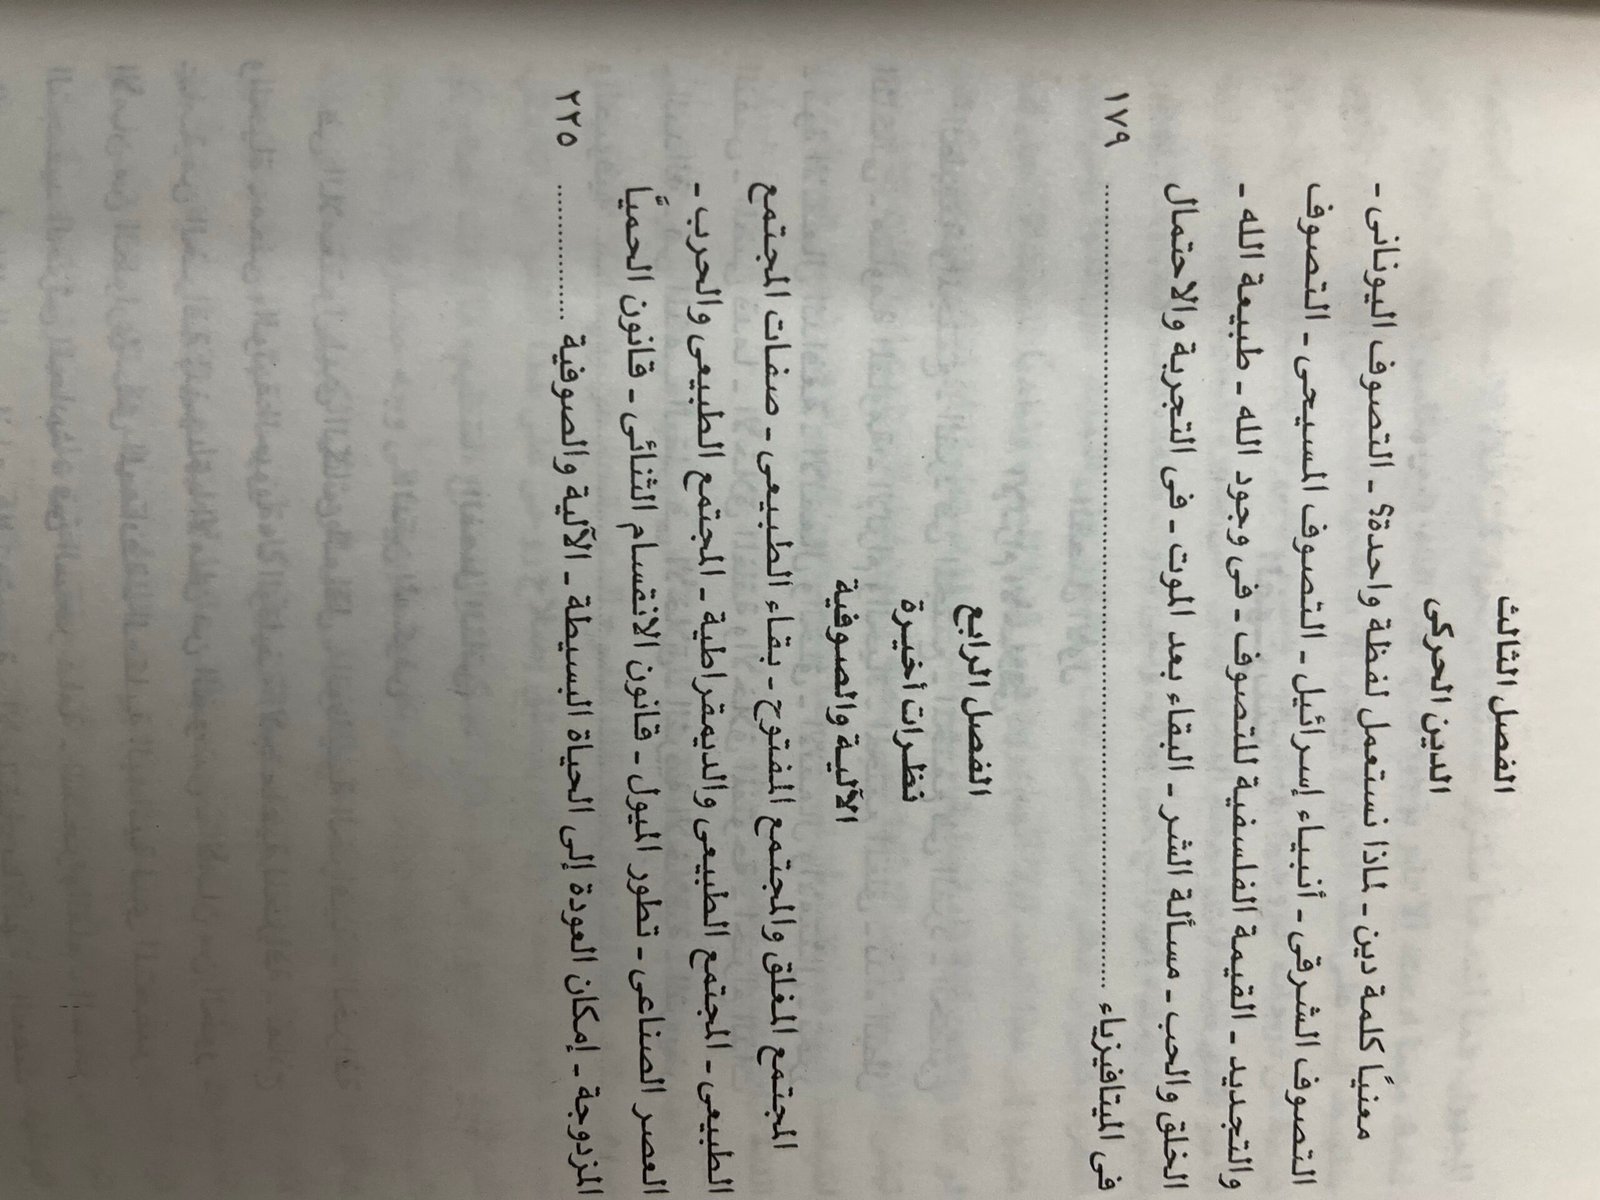 الفصل الثالث
الدين الحركى
معنيًا كلمة دين ـ لماذا نستعمل لفظة واحدة؟ ـ التصوف اليونانى ـ
التصوف الشرقى ـ أنبياء إسرائيل ـ التصوف المسيحى ـ التصوف
والتجديد ـ القيمة الفلسفية للتصوف ـ فى وجود الله ـ طبيعة الله ـ
الخلق والحب ـ مسألة الشر ـ البقاء بعد الموت ـ فى التجربة والاحتمال
فى الميتافيزياء .......... ١٧٩
الفصل الرابع
نظرات أخيرة
الآلية والصوفية
المجتمع المغلق والمجتمع المفتوح ـ بقاء الطبيعى ـ صفات المجتمع
الطبيعى ـ المجتمع الطبيعى والديمقراطية ـ المجتمع الطبيعى والحرب ـ
العصر الصناعى ـ تطور الميول ـ قانون الانقسام الثنائى ـ قانون الحميا
المزدوجة ـ إمكان العودة إلى الحياة البسيطة ـ الآلية والصوفية .......... ٢٢٥